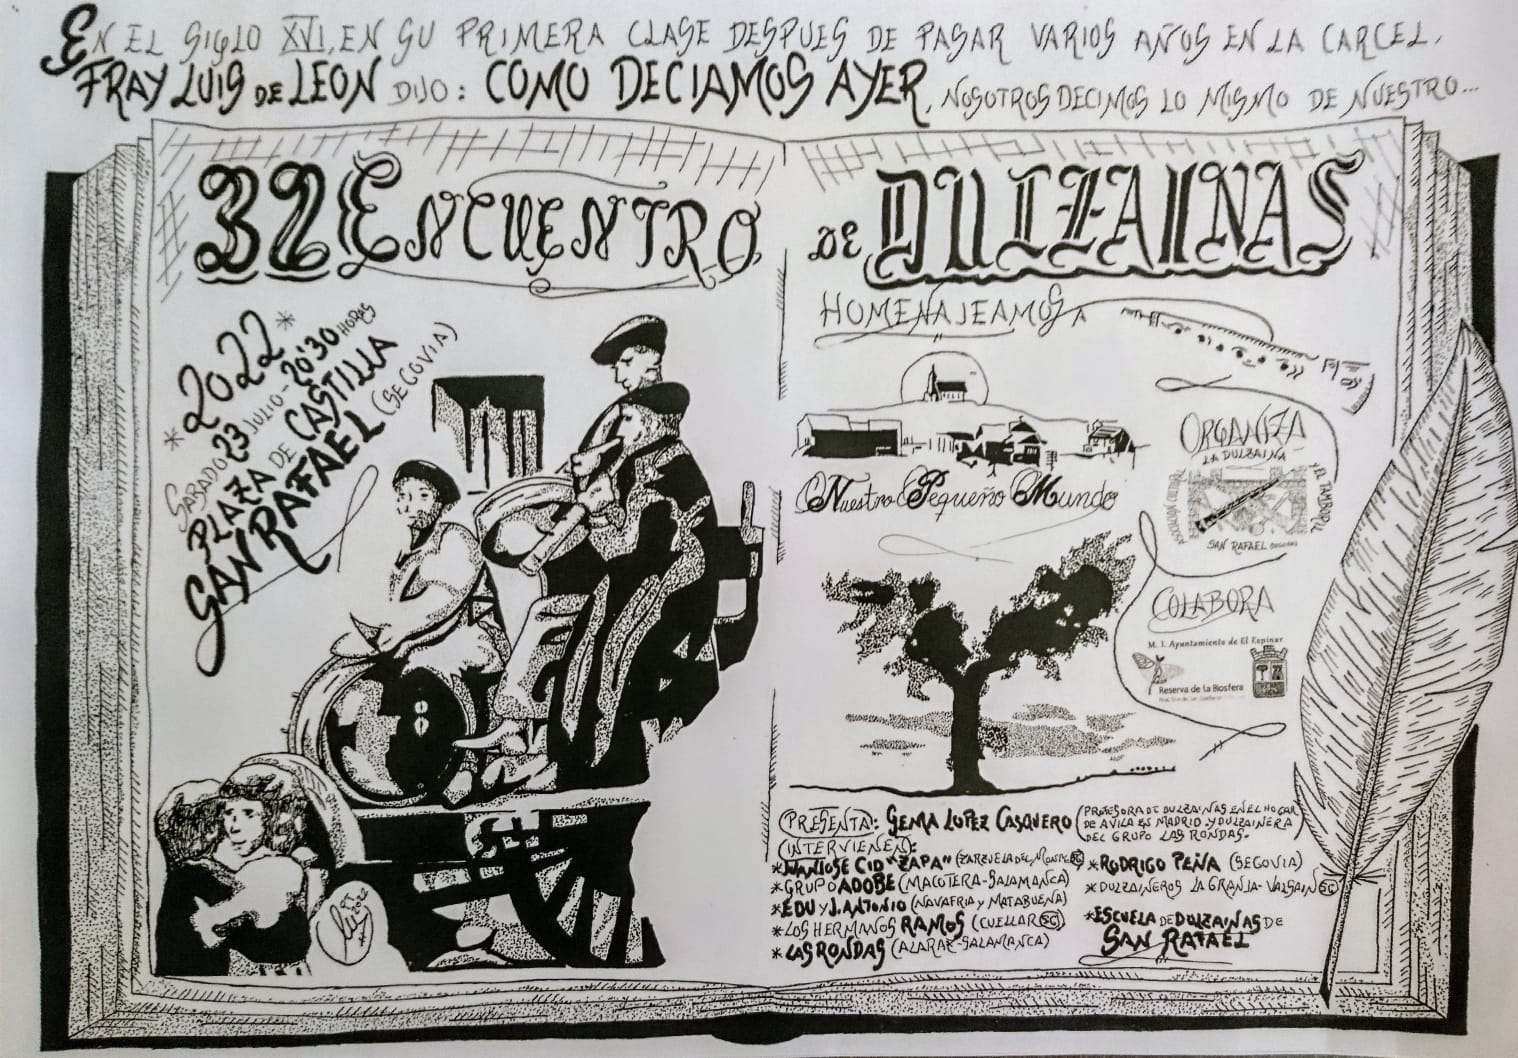 EN EL SIGLO XVI, EN SU PRIMERA CLASE DESPUES DE PASAR VARIOS AÑOS EN LA CARCEL,
FRAY LUIS DE LEON DIJO: COMO DECIAMOS AYER, NOSOTROS DECIMOS LO MISMO DE NUESTRO...
32 ENCUENTRO DE DULZAINAS
*2022*
SABADO 23 JULIO - 20'30 HORAS
PLAZA DE CASTILLA
SAN RAFAEL (SEGOVIA)
HOMENAJEAMOS A
Nuestro Pequeño Mundo
ORGANIZA
LA DULZAINA
Y EL TAMBORIL
SAN RAFAEL
COLABORA
M. I. Ayuntamiento de El Espinar
Reserva de la Biosfera
PRESENTA: GEMA LOPEZ CASQUERO (PROFESORA DE DULZAINAS EN EL HOGAR
DE AVILA EN MADRID Y DULZAINERA
DEL GRUPO LAS RONDAS.)
INTERVIENEN:
*JUANJOSE CID "ZAPA" (ZARZUELA DEL MONTE SG)
*GRUPO ADOBE (MACOTERA-SALAMANCA)
*EDU Y J. ANTONIO (NAVAFRIA Y MATABUENA)
*LOS HERMANOS RAMOS (CUELLAR SG)
*LAS RONDAS (ALARAZ-SALAMANCA)
*RODRIGO PEÑA (SEGOVIA)
*DULZAINEROS LA GRANJA-VALSAIN SG
*ESCUELA DE DULZAINAS DE
SAN RAFAEL